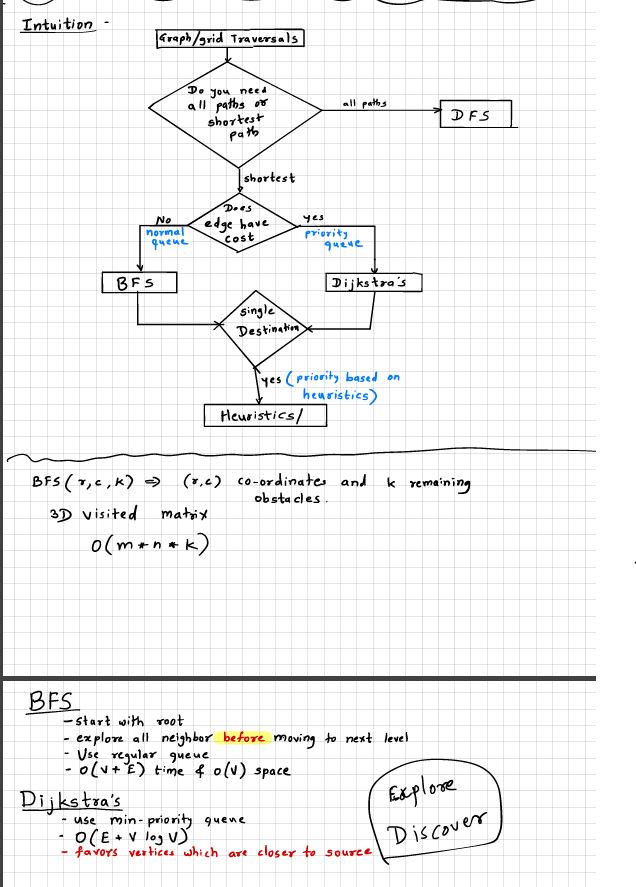 Intuition -
Graph/grid Traversals
Do you need
all paths or
shortest
path
all paths
DFS
shortest
Does
edge have
cost
No
normal
queue
yes
priority
queue
BFS
Dijkstra's
single
Destination
yes (priority based on
heuristics)
Heuristics/
BFS(r,c,k) ⇒ (r,c) co-ordinates and k remaining
obstacles.
3D visited matrix
O(m*n*k)
BFS
- start with root
- explore all neighbor before moving to next level
- Use regular queue
- O(V+E) time & O(V) space
Dijkstra's
- use min-priority queue
- O(E + V log V)
- favors vertices which are closer to source
Explore
Discover